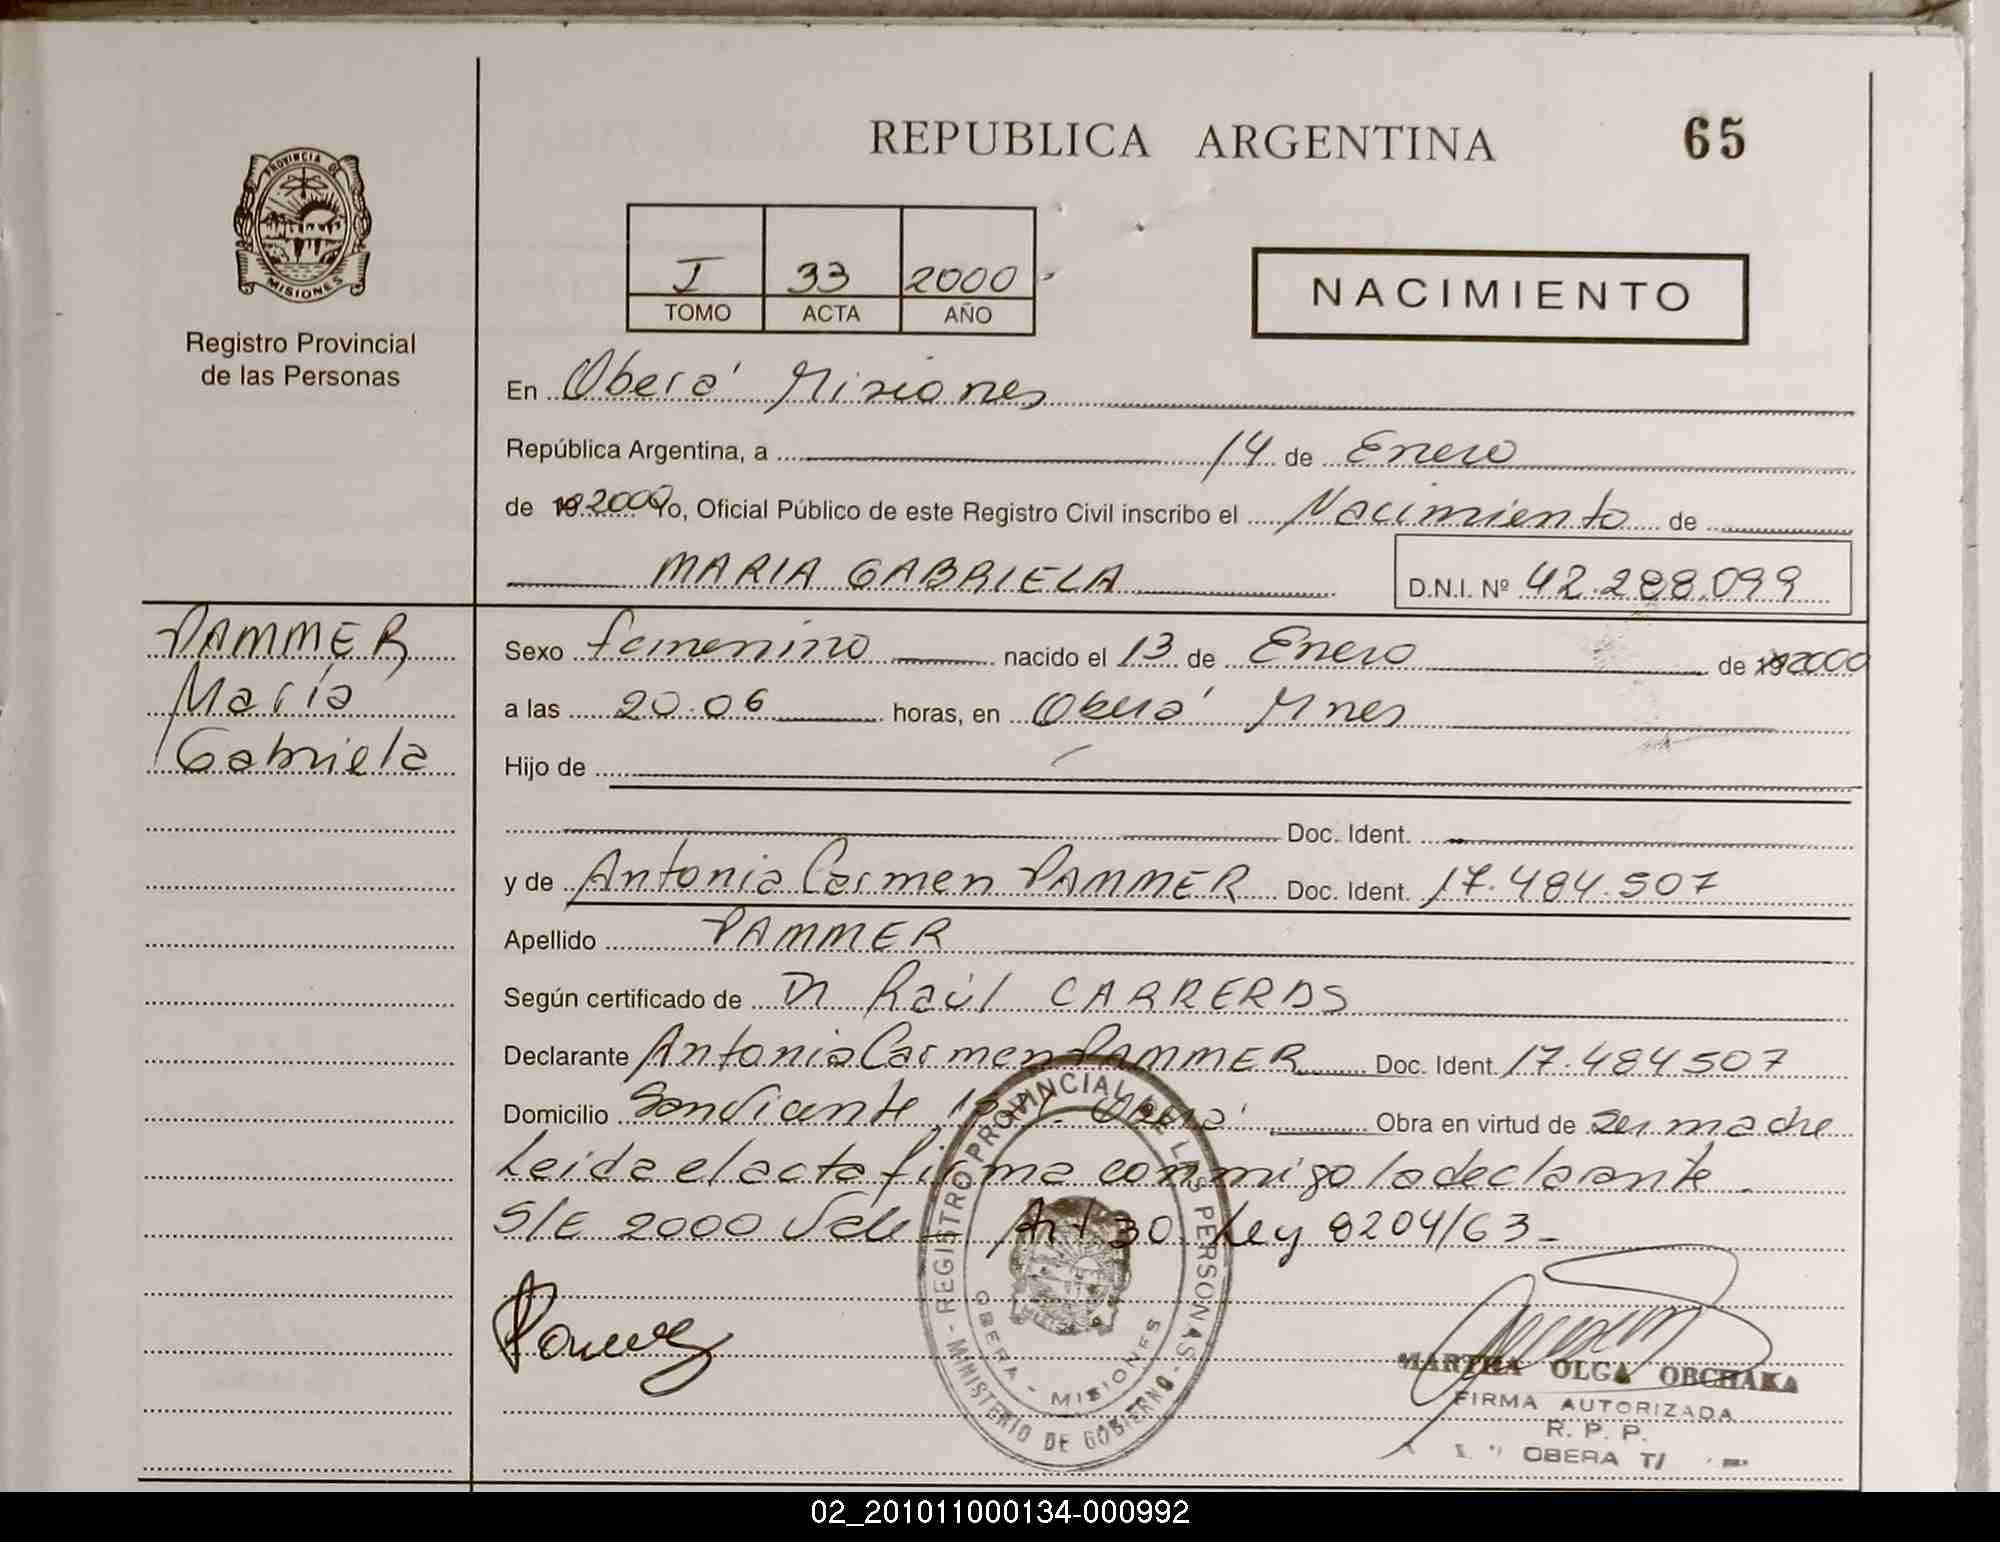 REPUBLICA ARGENTINA
65
PROVINCIA DE
MISIONES
Registro Provincial
de las Personas
I 33 2000
TOMO ACTA AÑO
NACIMIENTO
En Oberá Misiones
República Argentina, a 14 de Enero
de 19 2000 Yo, Oficial Público de este Registro Civil inscribo el Nacimiento de
MARIA GABRIELA D.N.I. Nº 42.288.099
PAMMER
María
Gabriela
Sexo femenino nacido el 13 de Enero de 19 2000
a las 20.06 horas, en Oberá Mnes
Hijo de
Doc. Ident.
y de Antonia Carmen PAMMER Doc. Ident. 17.484.507
Apellido PAMMER
Según certificado de Dr Raúl CARRERAS
Declarante Antonia Carmen PAMMER Doc. Ident. 17.484507
Domicilio Oberá Obra en virtud de ser madre
Leida el acta firma conmigo la declarante.
S/E 2000 Vale Art 30 Ley 8204/63-
REGISTRO PROVINCIAL DE LAS PERSONAS
- MINISTERIO DE GOBIERNO -
OBERA - MISIONES
MARTHA OLGA OBCHAKA
FIRMA AUTORIZADA
R. P. P.
OBERA
02_201011000134-000992